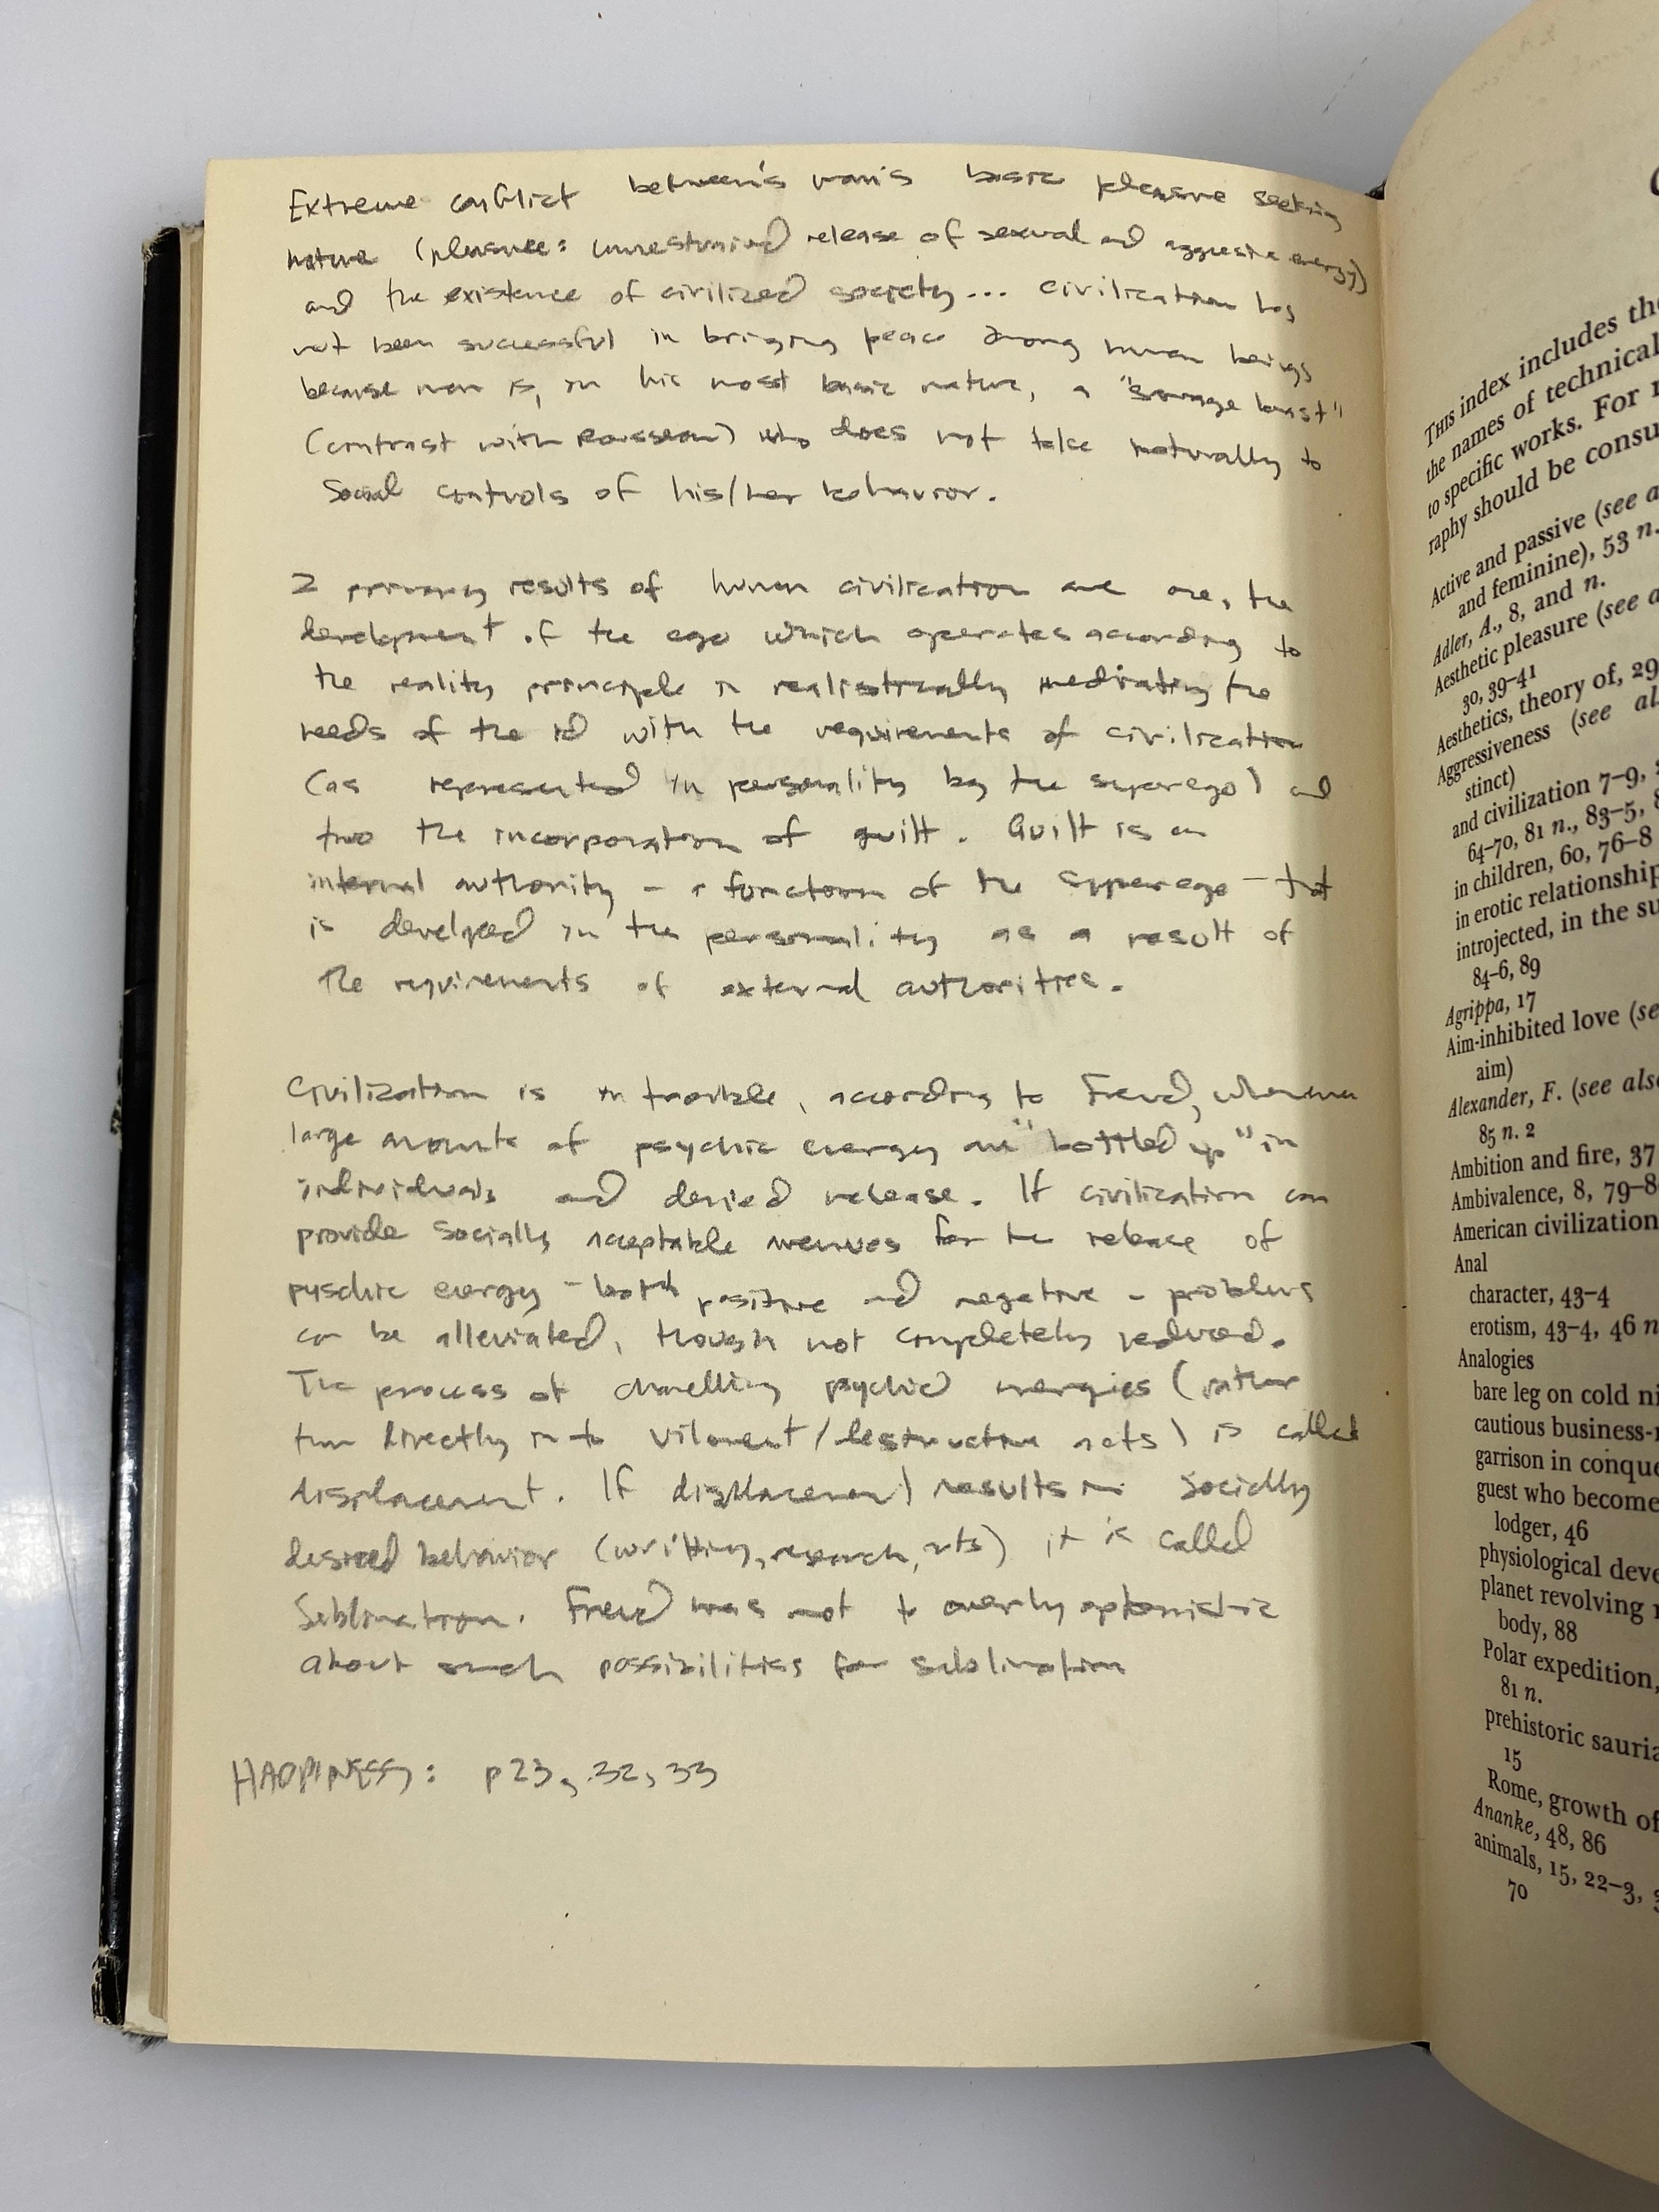 Extreme conflict between's man's basic pleasure seeking
nature (pleasure: unrestrained release of sexual and aggressive energy)
and the existence of civilized society... civilization has
not been successful in bringing peace among human beings
because man is, in his most basic nature, a "savage beast"
(contrast with Rousseau) who does not take naturally to
Social controls of his/her behavior.
2 primary results of human civilization are one, the
development of the ego which operates according to
the reality principle in realistically mediating the
needs of the id with the requirements of civilization
(as represented in personality by the superego) and
two the incorporation of guilt. Guilt is an
internal authority - a function of the supperego - that
is developed in the personality as a result of
The requirements of external authorities.
Civilization is in trouble, according to Freud, whenever
large amounts of psychic energy are "bottled up" in
individuals and denied release. If civilization can
provide socially acceptable avenues for the release of
pyschic energy - both positive and negative - problems
can be alleviated, though not completely reduced.
The process of channelling psychic energies (rather
than directly into violent/destructive acts) is called
displacement. If displacement results in socially
desired behavior (writting, research, arts) it is called
Sublimation. Freud was not to overly optomistic
about such possibilities for sublimation
HAPPINESS: p23, 32, 33
THIS index includes the
the names of technical
to specific works. For
raphy should be consu
Active and passive (see a
and feminine), 53 n.
Adler, A., 8, and n.
Aesthetic pleasure (see a
30, 39-41
Aesthetics, theory of, 29
Aggressiveness (see al
stinct)
and civilization 7-9,
64-70, 81 n., 83-5,
in children, 60, 76-8
in erotic relationship
introjected, in the su
84-6, 89
Agrippa, 17
Aim-inhibited love (se
aim)
Alexander, F. (see also
85 n. 2
Ambition and fire, 37
Ambivalence, 8, 79-8
American civilization
Anal
character, 43-4
erotism, 43-4, 46 n
Analogies
bare leg on cold ni
cautious business-
garrison in conque
guest who become
lodger, 46
physiological deve
planet revolving
body, 88
Polar expedition,
81 n.
prehistoric sauria
15
Rome, growth of
Ananke, 48, 86
animals, 15, 22-3,
70